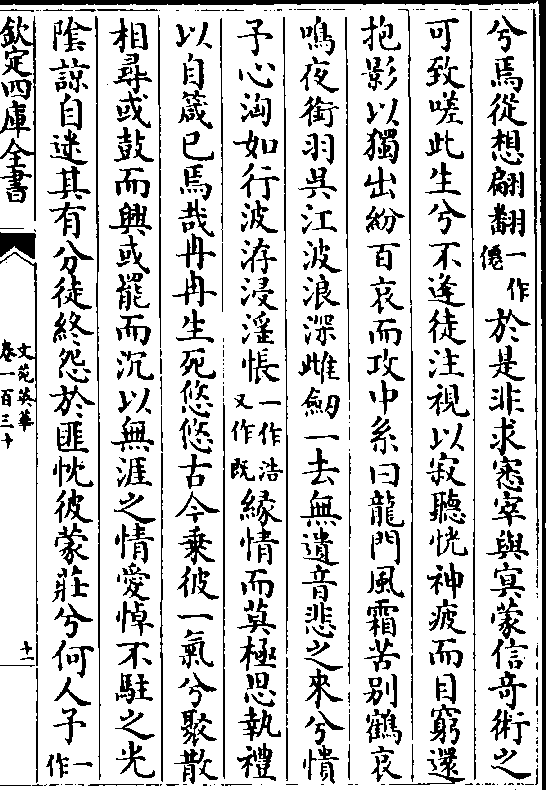 兮焉從想翩翻一作僊於是非求宻宰與㝠蒙信奇術之
可致嗟此生兮不逢徒注視以寂聽恍神疲而目窮還
抱影以獨出紛百哀而攻中系曰龍門風霜苦别鶴哀
鳴夜銜羽呉江波浪深雌劒一去無遺音悲之来兮憒
予心洶如行波洊浸淫悵一作浩又作既縁情而莫極思執禮
以自箴已焉哉冉冉生死悠悠古今乗彼一氣兮聚散
相尋或鼓而興或罷而沉以無涯之情愛悼不駐之光
陰諒自迷其有分徒終怨於匪忱彼蒙莊兮何人予一作
欽定四庫全書
文苑英華
卷一百三十
十一